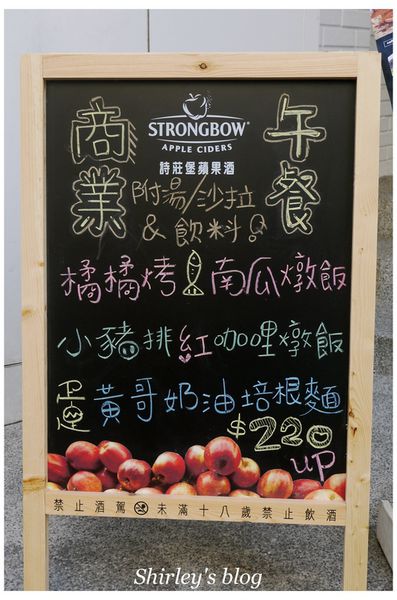 STRONGBOW
APPLE CIDERS
詩莊堡蘋果酒
商業
午餐
附湯/沙拉
&飲料
橘橘烤 南瓜燉飯
小豬排紅咖哩燉飯
黃哥奶油培根麵
$220
up
禁止酒駕 未滿十八歲禁止飲酒
Shirley's blog